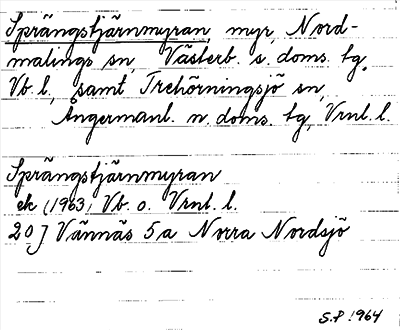 Sprängstjärnmyran, myr, Nord-
malings sn, Västerb. s. doms. tg,
Vb. l., samt Trehörningsjö sn,
Ångermanl. n. doms. tg, Vrnl. l.
Sprängstjärnmyran
ek (1963) Vb. o. Vrnl. l.
20J Vännäs 5a Norra Nordsjö
S.P. 1964